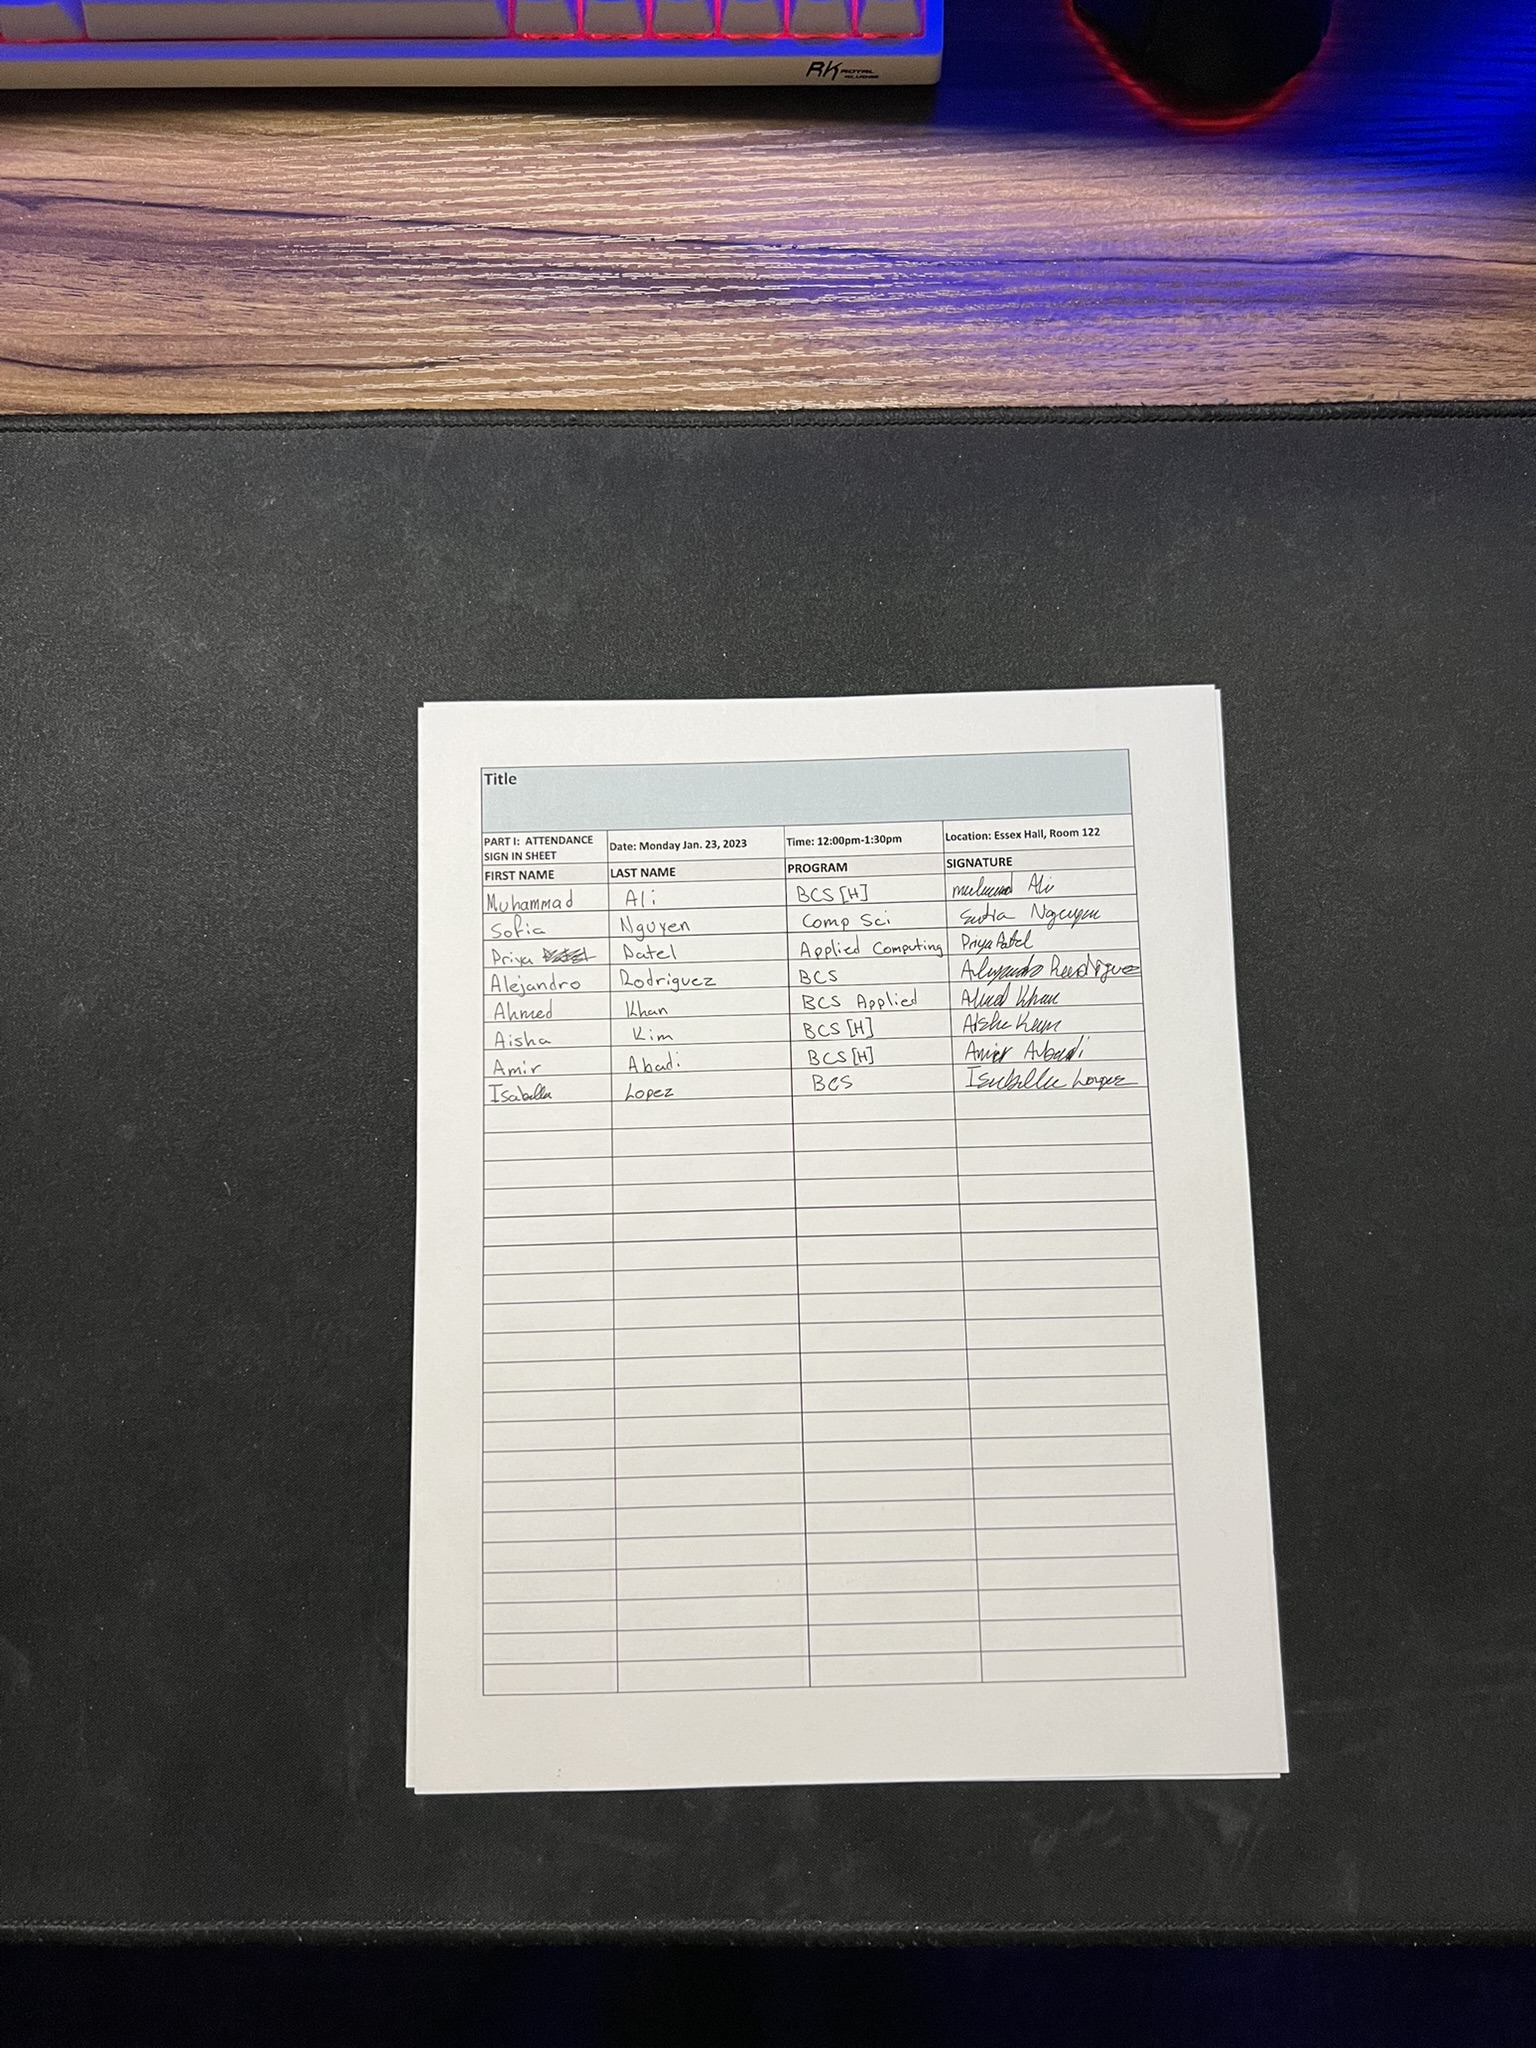 RK ROYAL KLUDGE
Title
PART I: ATTENDANCE SIGN IN SHEET Date: Monday Jan. 23, 2023 Time: 12:00pm-1:30pm Location: Essex Hall, Room 122
FIRST NAME LAST NAME PROGRAM SIGNATURE
Muhammad Ali BCS [H] Ali
Sofia Nguyen Comp Sci Sofia Nguyen
Priya Patel Applied Computing Priya Patel
Alejandro Rodriguez BCS Alejandro Rodriguez
Ahmed Khan BCS Applied Ahmed Khan
Aisha Kim BCS [H] Aisha Kim
Amir Abadi BCS [H] Amir Abadi
Isabella Lopez BCS Isabella Lopez